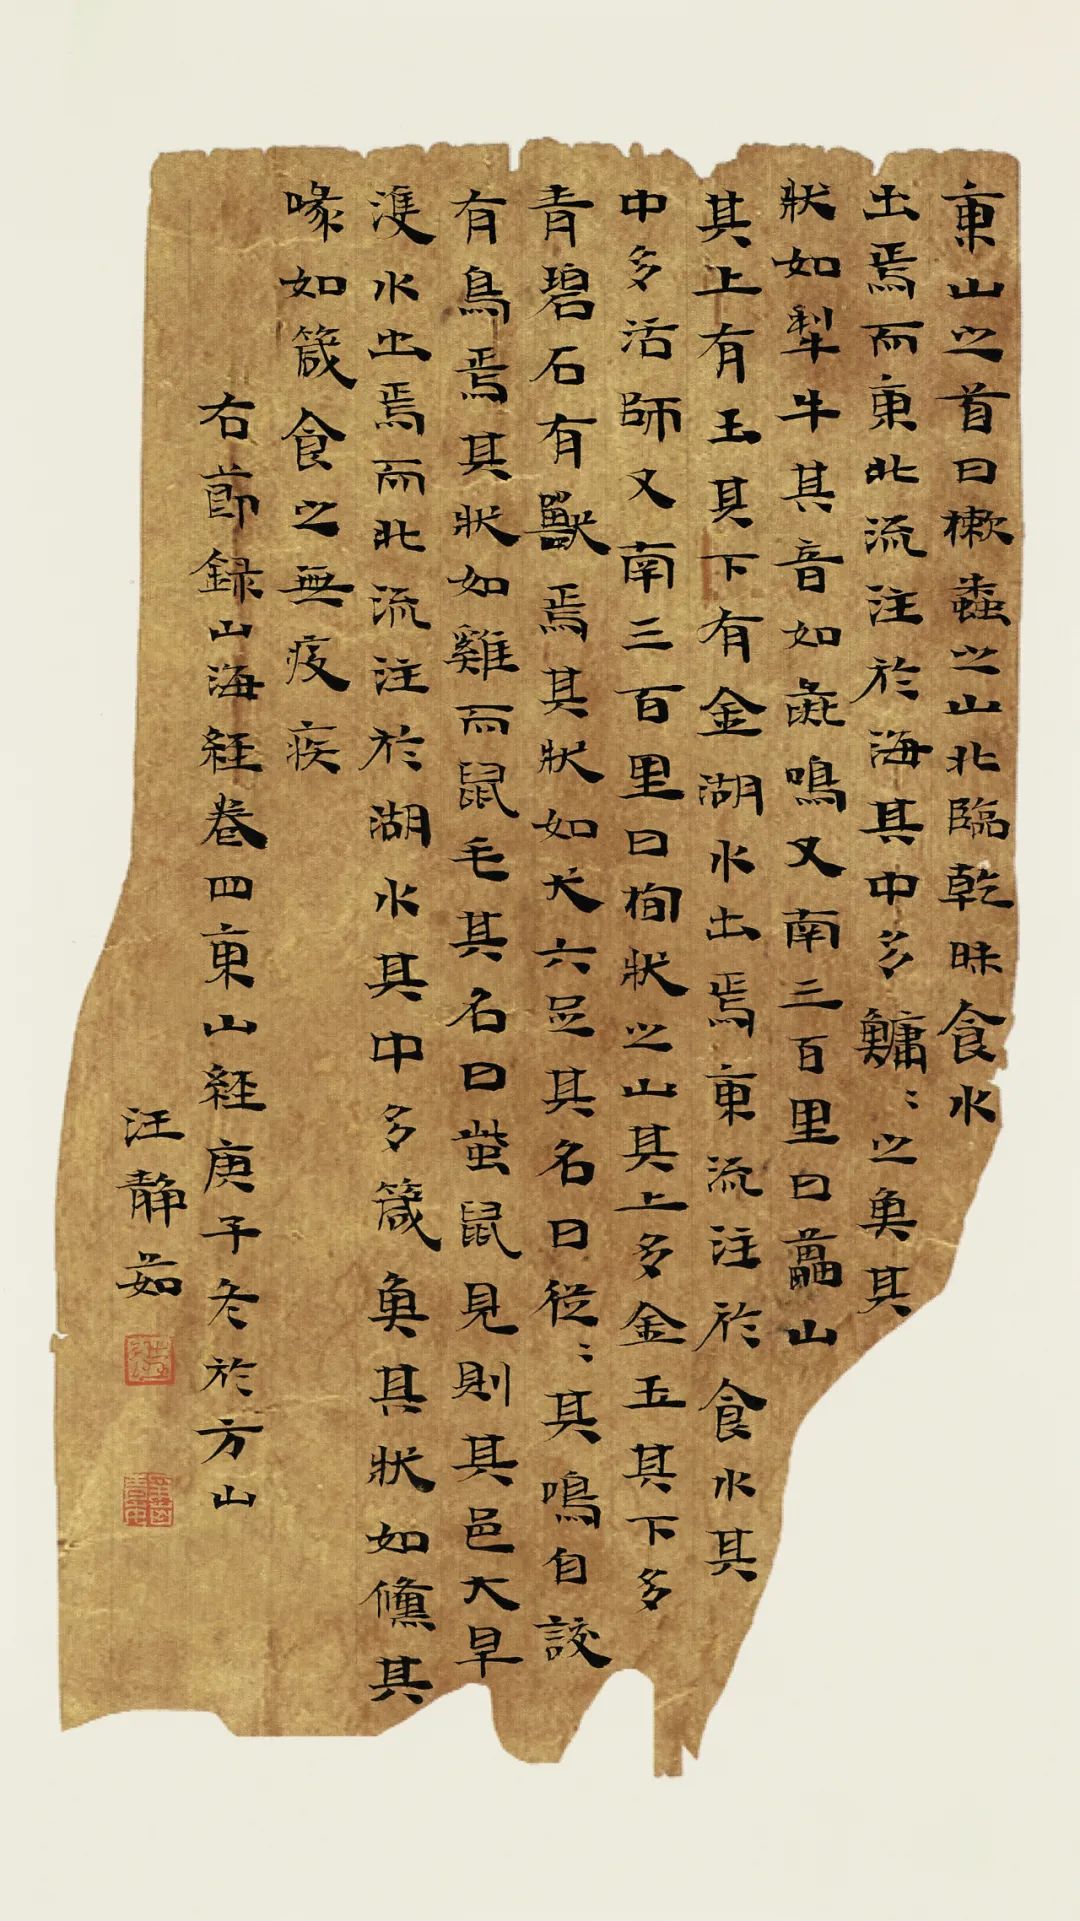 東山之首曰樕䖵之山北臨乾昧食水
出焉而東北流注於海其中多鱅〻之魚其
狀如犁牛其音如彘鳴又南三百里曰藟山
其上有玉其下有金湖水出焉東流注於食水其
中多活師又南三百里曰栒狀之山其上多金玉其下多
青碧石有獸焉其狀如犬六足其名曰從〻其鳴自詨
有鳥焉其狀如雞而鼠毛其名曰蚩鼠見則其邑大旱
水出焉而北流注於湖水其中多箴魚其狀如儵其
喙如箴食之無疫疾
右節録山海経卷四東山経庚子冬於方山
汪静茹